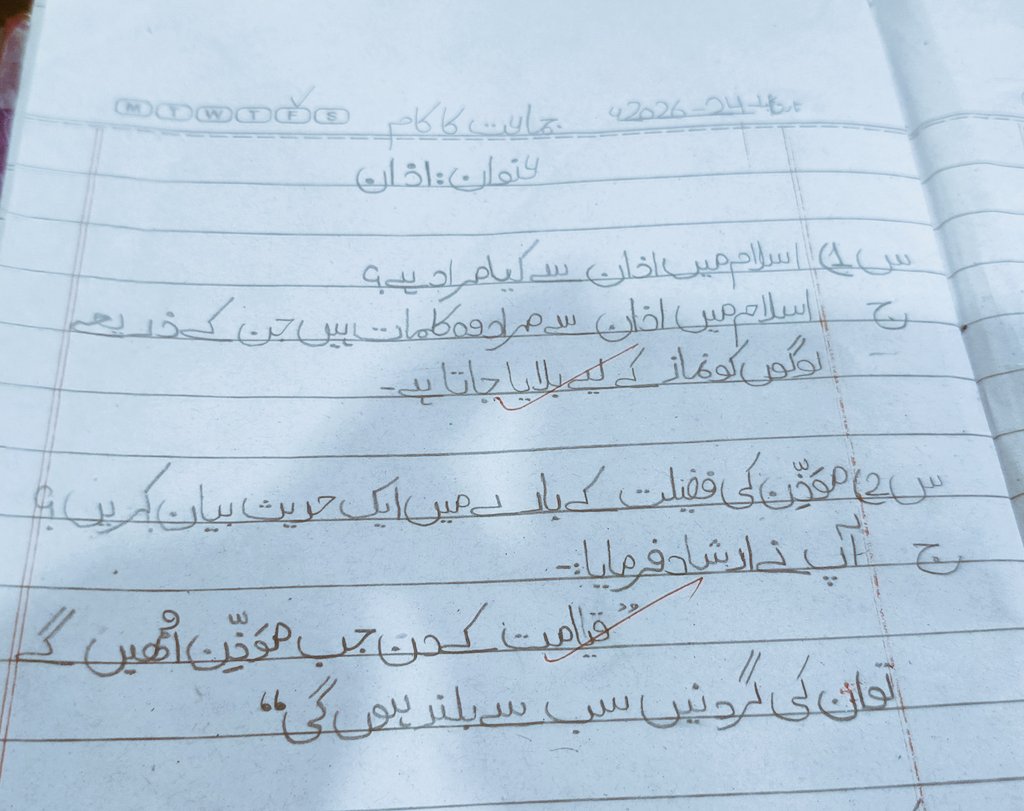 M T W T F S جماعت کا کام 2026-24-
عنوان: اذان
س 1) اسلام میں اذان سے کیا مراد ہے؟
ج اسلام میں اذان سے مراد وہ کلمات ہیں جن کے ذریعے
لوگوں کو نماز کے لیے بلایا جاتا ہے۔
س 2) مؤذّن کی فضیلت کے بارے میں ایک حدیث بیان کریں؟
ج آپ نے ارشاد فرمایا:-
”قیامت کے دن جب مؤذّن اُٹھیں گے
تو ان کی گردنیں سب سے بلند ہوں گی“